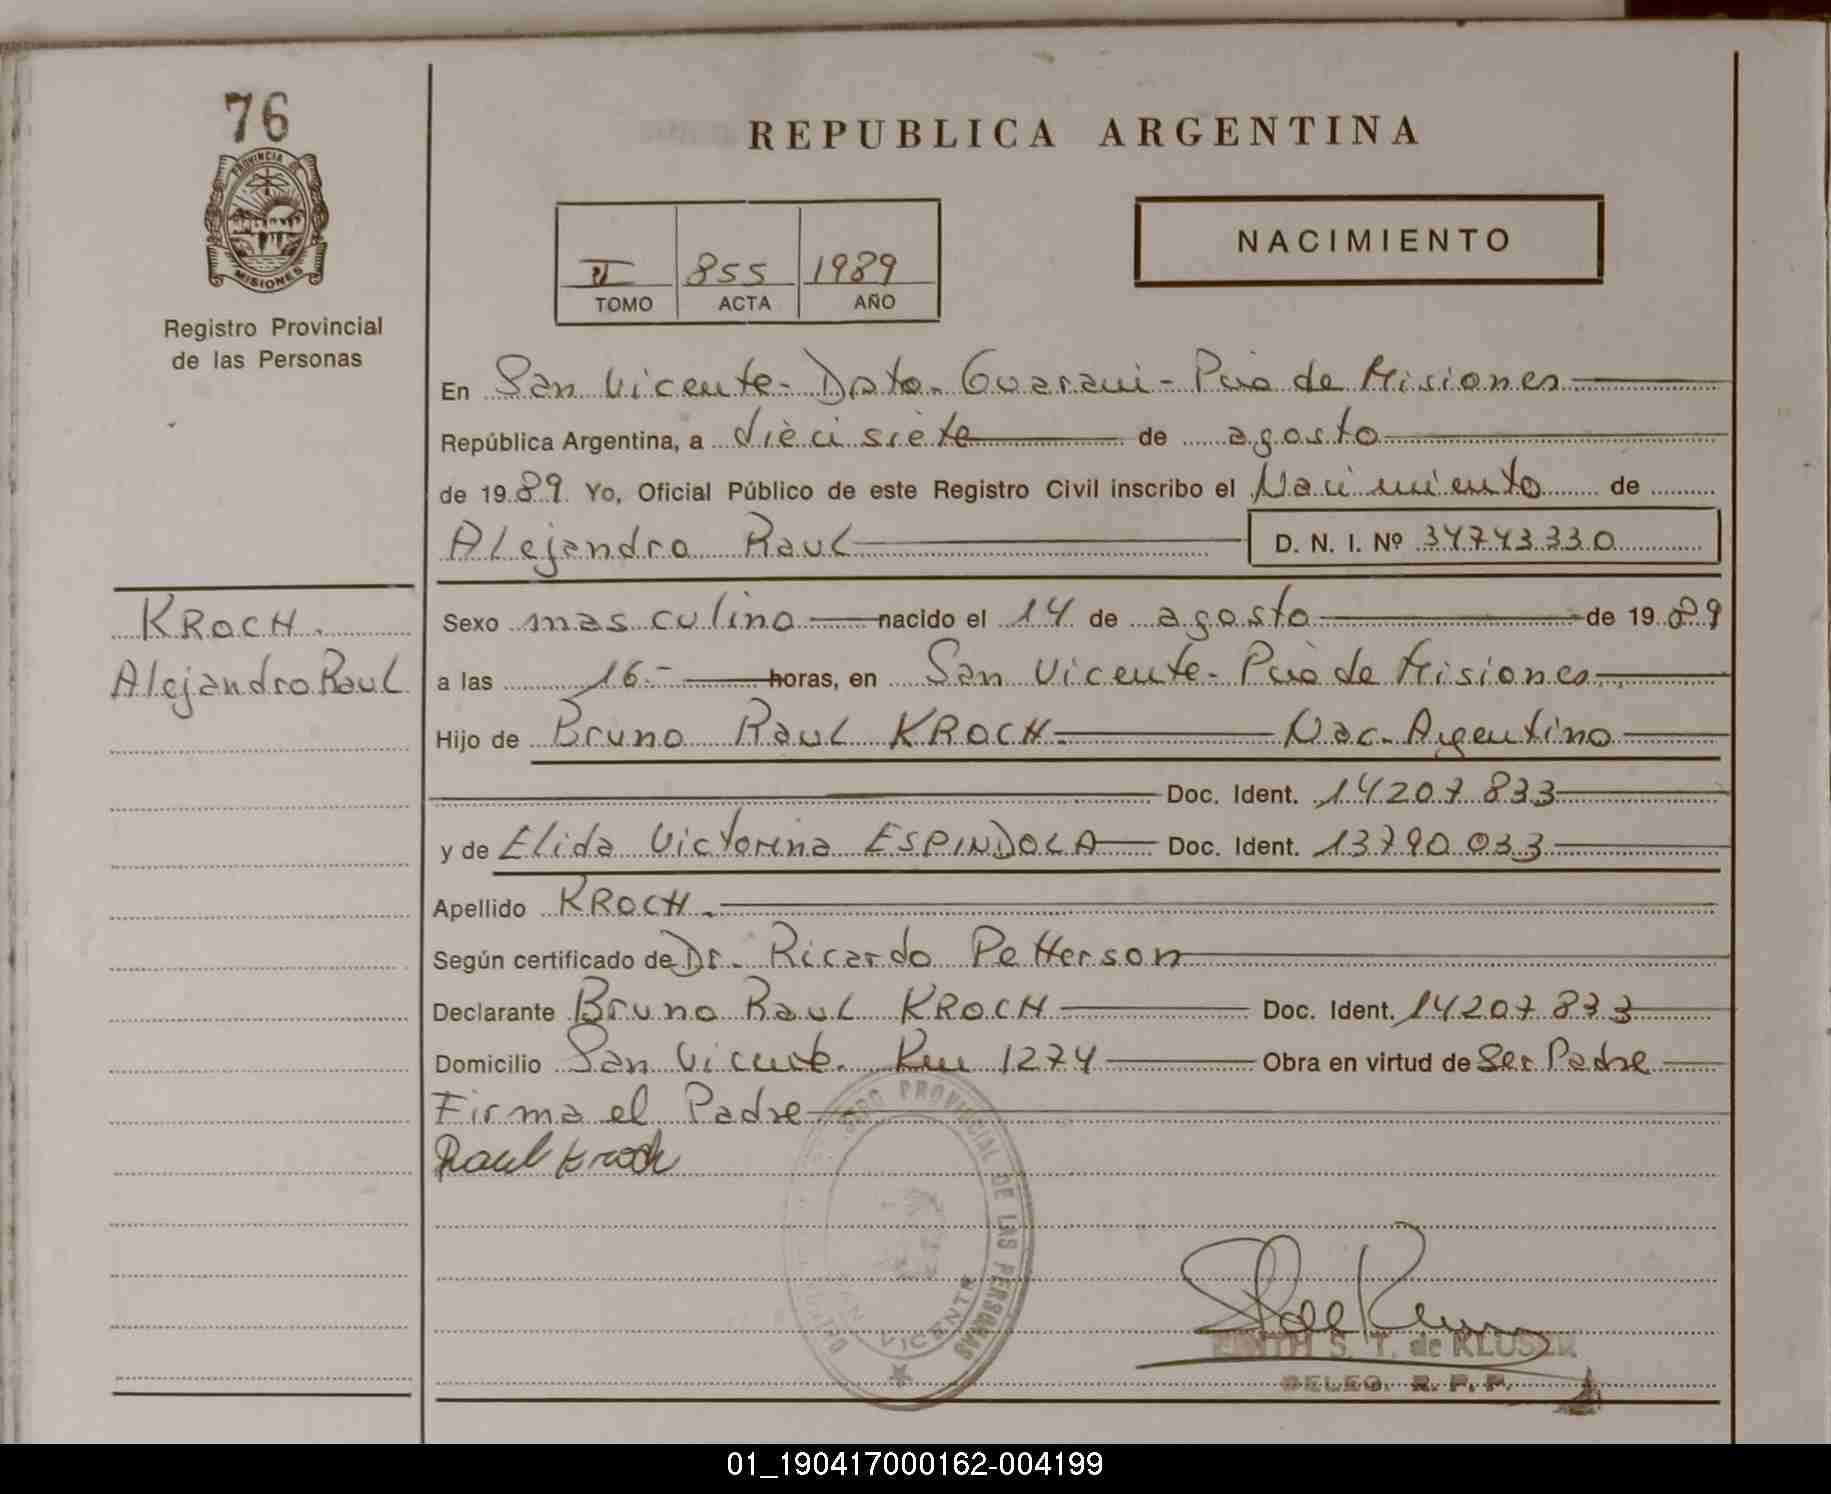 76
PROVINCIA DE
MISIONES
Registro Provincial
de las Personas
KROCH.
Alejandro Raul
REPUBLICA ARGENTINA
II 855 1989
TOMO ACTA AÑO
NACIMIENTO
En San Vicente - Dpto. Guarani - Pcia de Misiones
República Argentina, a diecisiete de agosto
de 1989. Yo, Oficial Público de este Registro Civil inscribo el Nacimiento de
Alejandro Raul D. N. I. Nº 34743330
Sexo masculino nacido el 14 de agosto de 1989
a las 16.- horas, en San Vicente - Pcia de Misiones
Hijo de Bruno Raul KROCH. Nac. Argentino
Doc. Ident. 14207833
y de Elida Victorina ESPINDOLA Doc. Ident. 13790033
Apellido KROCH.
Según certificado de Dr. Ricardo Petterson
Declarante Bruno Raul KROCH Doc. Ident. 14207833
Domicilio San Vicente. Km 1274 Obra en virtud de Ser Padre
Firma el Padre
Raul Kroch
PROVINCIAL DE LAS PERSONAS
SAN VICENTE
EDITH S. T. de KLUSER
DELEG. R. P. P.
01_190417000162-004199